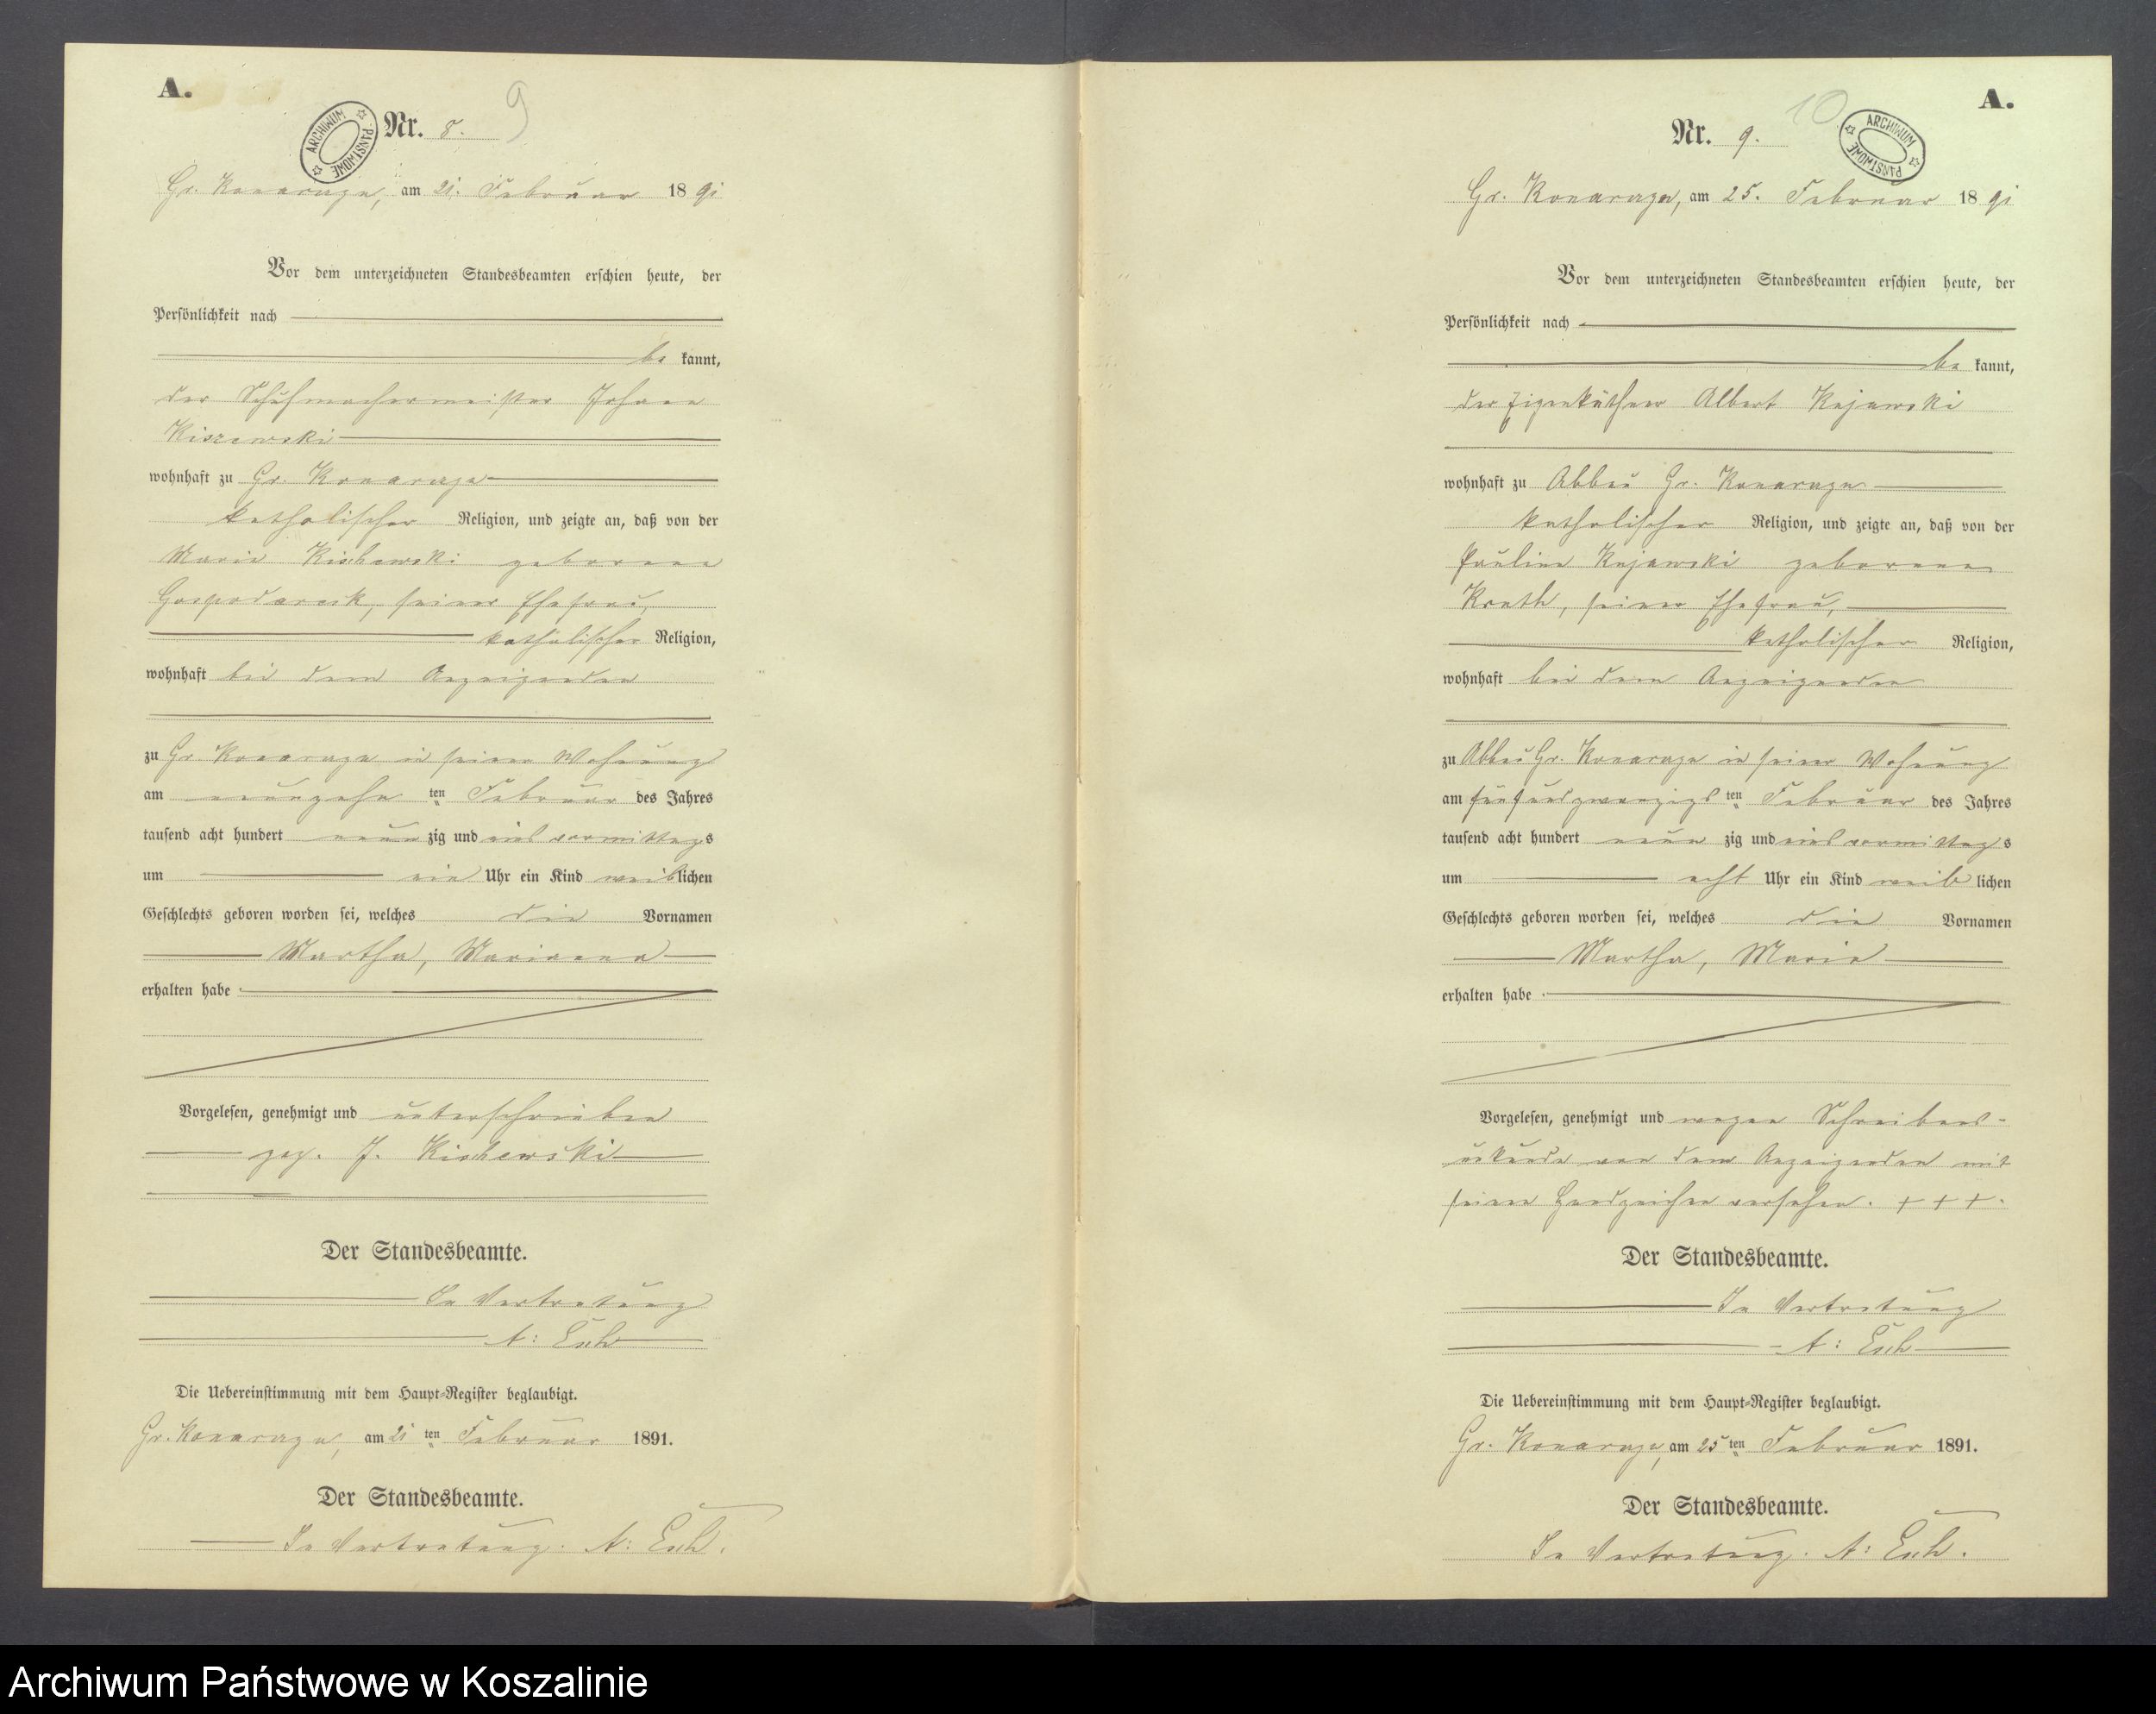 A.
ARCHIWUM PAŃSTWOWE
Nr. 8.
9
Gr. Konarczyn, am 21. Februar 1891
Vor dem unterzeichneten Standesbeamten erschien heute, der
Persönlichkeit nach
be kannt,
der Schuhmachermeister Johann
Kiszewski
wohnhaft zu Gr. Konarczyn
katholischer Religion, und zeigte an, daß von der
Marie Kischewski geborene
Gospodareck, seiner Ehefrau,
katholischer Religion,
wohnhaft bei dem Anzeigenden
zu Gr. Konarczyn in seiner Wohnung
am neunzehn ten Februar des Jahres
tausend acht hundert neun zig und eins vormittags
um ein Uhr ein Kind weiblichen
Geschlechts geboren worden sei, welches die Vornamen
Martha, Marianna
erhalten habe
Vorgelesen, genehmigt und unterschrieben
gez. J. Kischewski
Der Standesbeamte.
In Vertretung
A: Esch
Die Uebereinstimmung mit dem Haupt-Register beglaubigt.
Gr. Konarczyn, am 21 ten Februar 1891.
Der Standesbeamte.
In Vertretung. A: Esch.
A.
10
ARCHIWUM PAŃSTWOWE
Nr. 9.
Gr. Konarczyn, am 25. Februar 1891
Vor dem unterzeichneten Standesbeamten erschien heute, der
Persönlichkeit nach
be kannt,
der Eigenkäthner Albert Kujawski
wohnhaft zu Abbau Gr. Konarczyn
katholischer Religion, und zeigte an, daß von der
Pauline Kujawski geborenen
seiner Ehefrau,
katholischer Religion,
wohnhaft bei dem Anzeigenden
zu Abbau Gr. Konarczyn in seiner Wohnung
am fünfundzwanzigs ten Februar des Jahres
tausend acht hundert neun zig und eins vormittags
um acht Uhr ein Kind weib lichen
Geschlechts geboren worden sei, welches die Vornamen
Martha, Marie
erhalten habe
Vorgelesen, genehmigt und wegen Schreibens-
unkunde von dem Anzeigenden mit
seinen Handzeichen versehen. + + +.
Der Standesbeamte.
In Vertretung
A: Esch
Die Uebereinstimmung mit dem Haupt-Register beglaubigt.
Gr. Konarczyn, am 25 ten Februar 1891.
Der Standesbeamte.
In Vertretung. A: Esch.
Archiwum Państwowe w Koszalinie